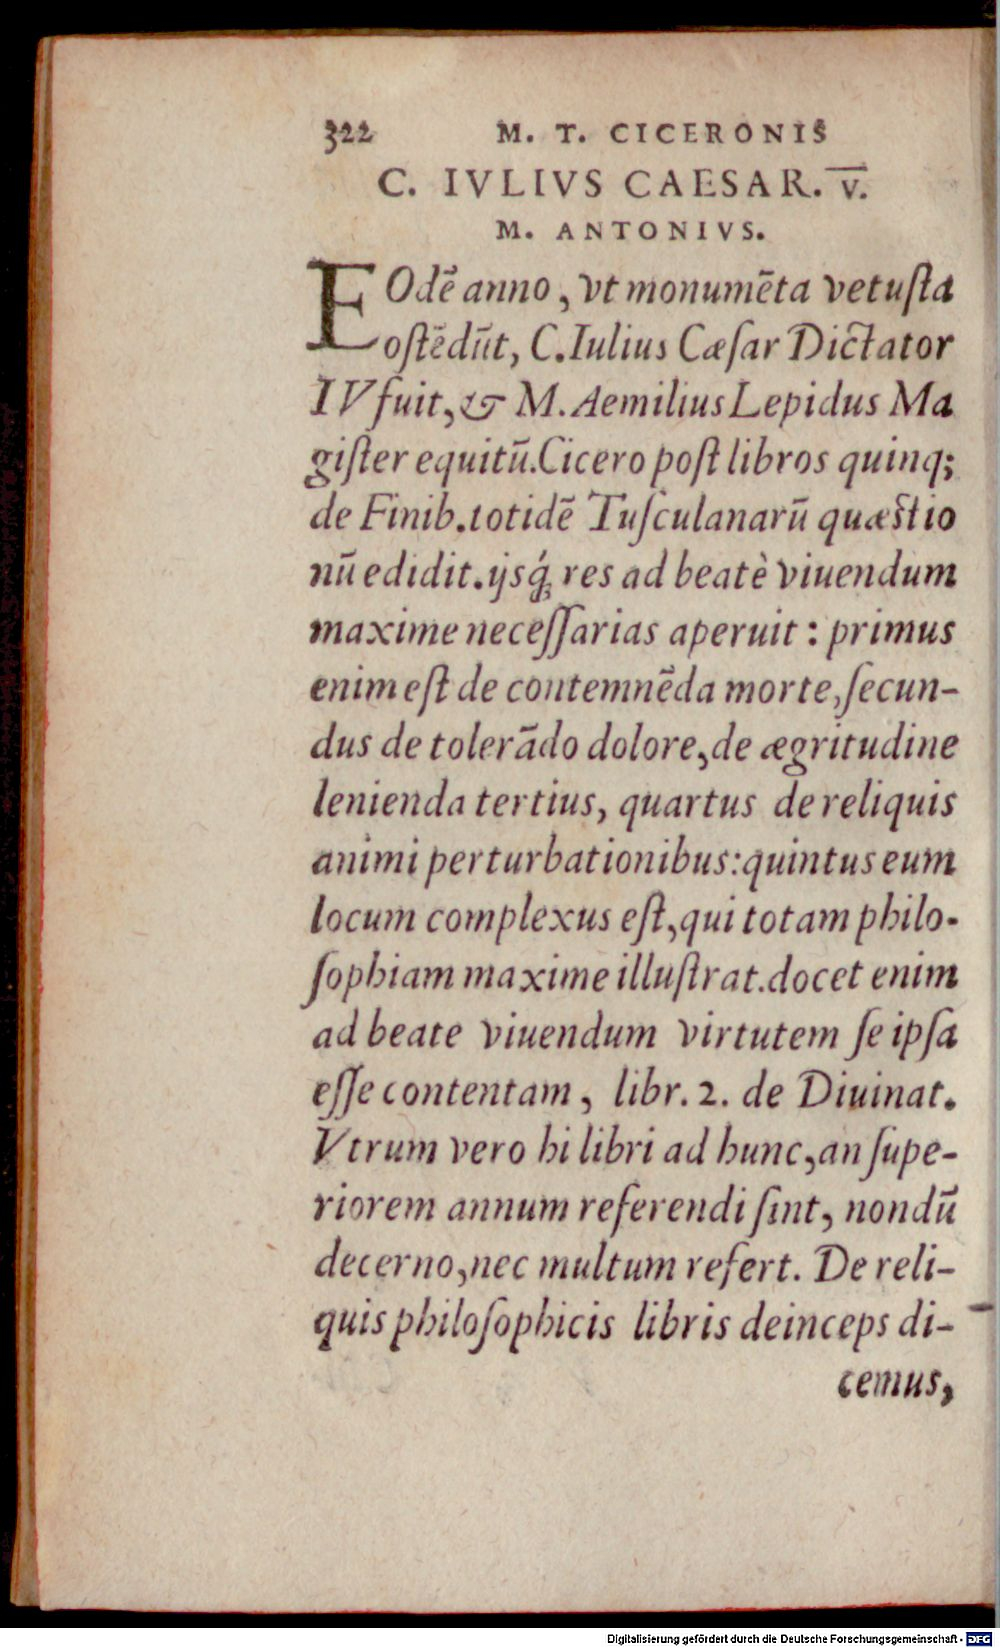 322 M. T. CICERONIS
C. IVLIVS CAESAR. V̅.
M. ANTONIVS.
EOdē anno, vt monumēta vetuſta
oſtēdūt, C. Iulius Cæſar Dictator
IV fuit, & M. Aemilius Lepidus Ma
giſter equitū. Cicero poſt libros quinq;
de Finib. totidē Tuſculanarū quæſtio
nū edidit. ijsq́; res ad beatè viuendum
maxime neceſſarias aperuit: primus
enim eſt de contemnēda morte, ſecun-
dus de tolerādo dolore, de ægritudine
lenienda tertius, quartus de reliquis
animi perturbationibus: quintus eum
locum complexus eſt, qui totam philo-
ſophiam maxime illuſtrat. docet enim
ad beate viuendum virtutem ſe ipſa
eſſe contentam, libr. 2. de Diuinat.
Vtrum vero hi libri ad hunc, an ſupe-
riorem annum referendi ſint, nondū
decerno, nec multum refert. De reli-
quis philoſophicis libris deinceps di-
cemus,
Digitalisierung gefördert durch die Deutsche Forschungsgemeinschaft - DFG